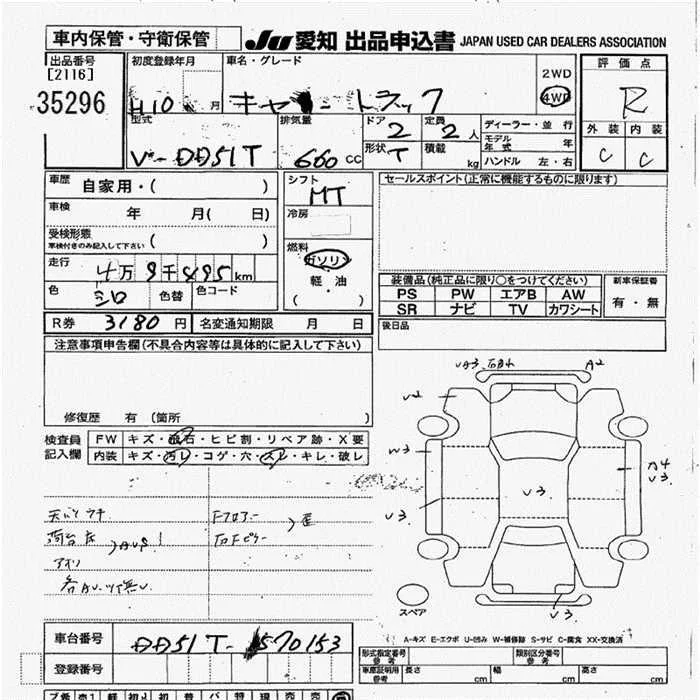 車内保管・守衛保管 JU 愛知 出品申込書 JAPAN USED CAR DEALERS ASSOCIATION
出品番号
[2116]
35296
初度登録年月
H10 月
車名・グレード
キャリー トラック
2WD
4WD
評価点
R
外装 内装
C C
型式
V-DD51T
排気量
660 CC
ドア 2
定員 2 人
形状 T
積載 kg
ディーラー・並行
モデル年式 年
ハンドル 左・右
車歴 自家用・( )
車検 年 月( 日)
受検形態
車検付きのみ記入して下さい ( )
走行 4万 9千 495 km
色 シロ 色替 色コード
シフト
MT
冷房
燃料
ガソリン
軽・油
( )
セールスポイント(正常に機能するものに限ります)
装備品(純正品に限り○をつけてください)
PS PW エアB AW
SR ナビ TV カワシート
新車保証書
有・無
後日品
R券 3180 円 名変通知期限 月 日
注意事項申告欄(不具合内容等は具体的に記入して下さい)
修復歴 有 (箇所 )
検査員
記入欄
FW キズ・飛石・ヒビ割・リペア跡・X要
内装 キズ・汚レ・コゲ・穴・スレ・キレ・破レ
Fフロアー
右Fピラー
A2
v2
w3
v3
v3
A4
v3
v3
スペア
A-キズ E-エクボ U-凹み W-補修跡 S-サビ C-腐食 XX-交換済
車台番号 DD51T-570153
登録番号
形式指定番号
参考
類別区分番号
参考
車庫証明用
参考
長さ cm 幅 cm 高さ cm